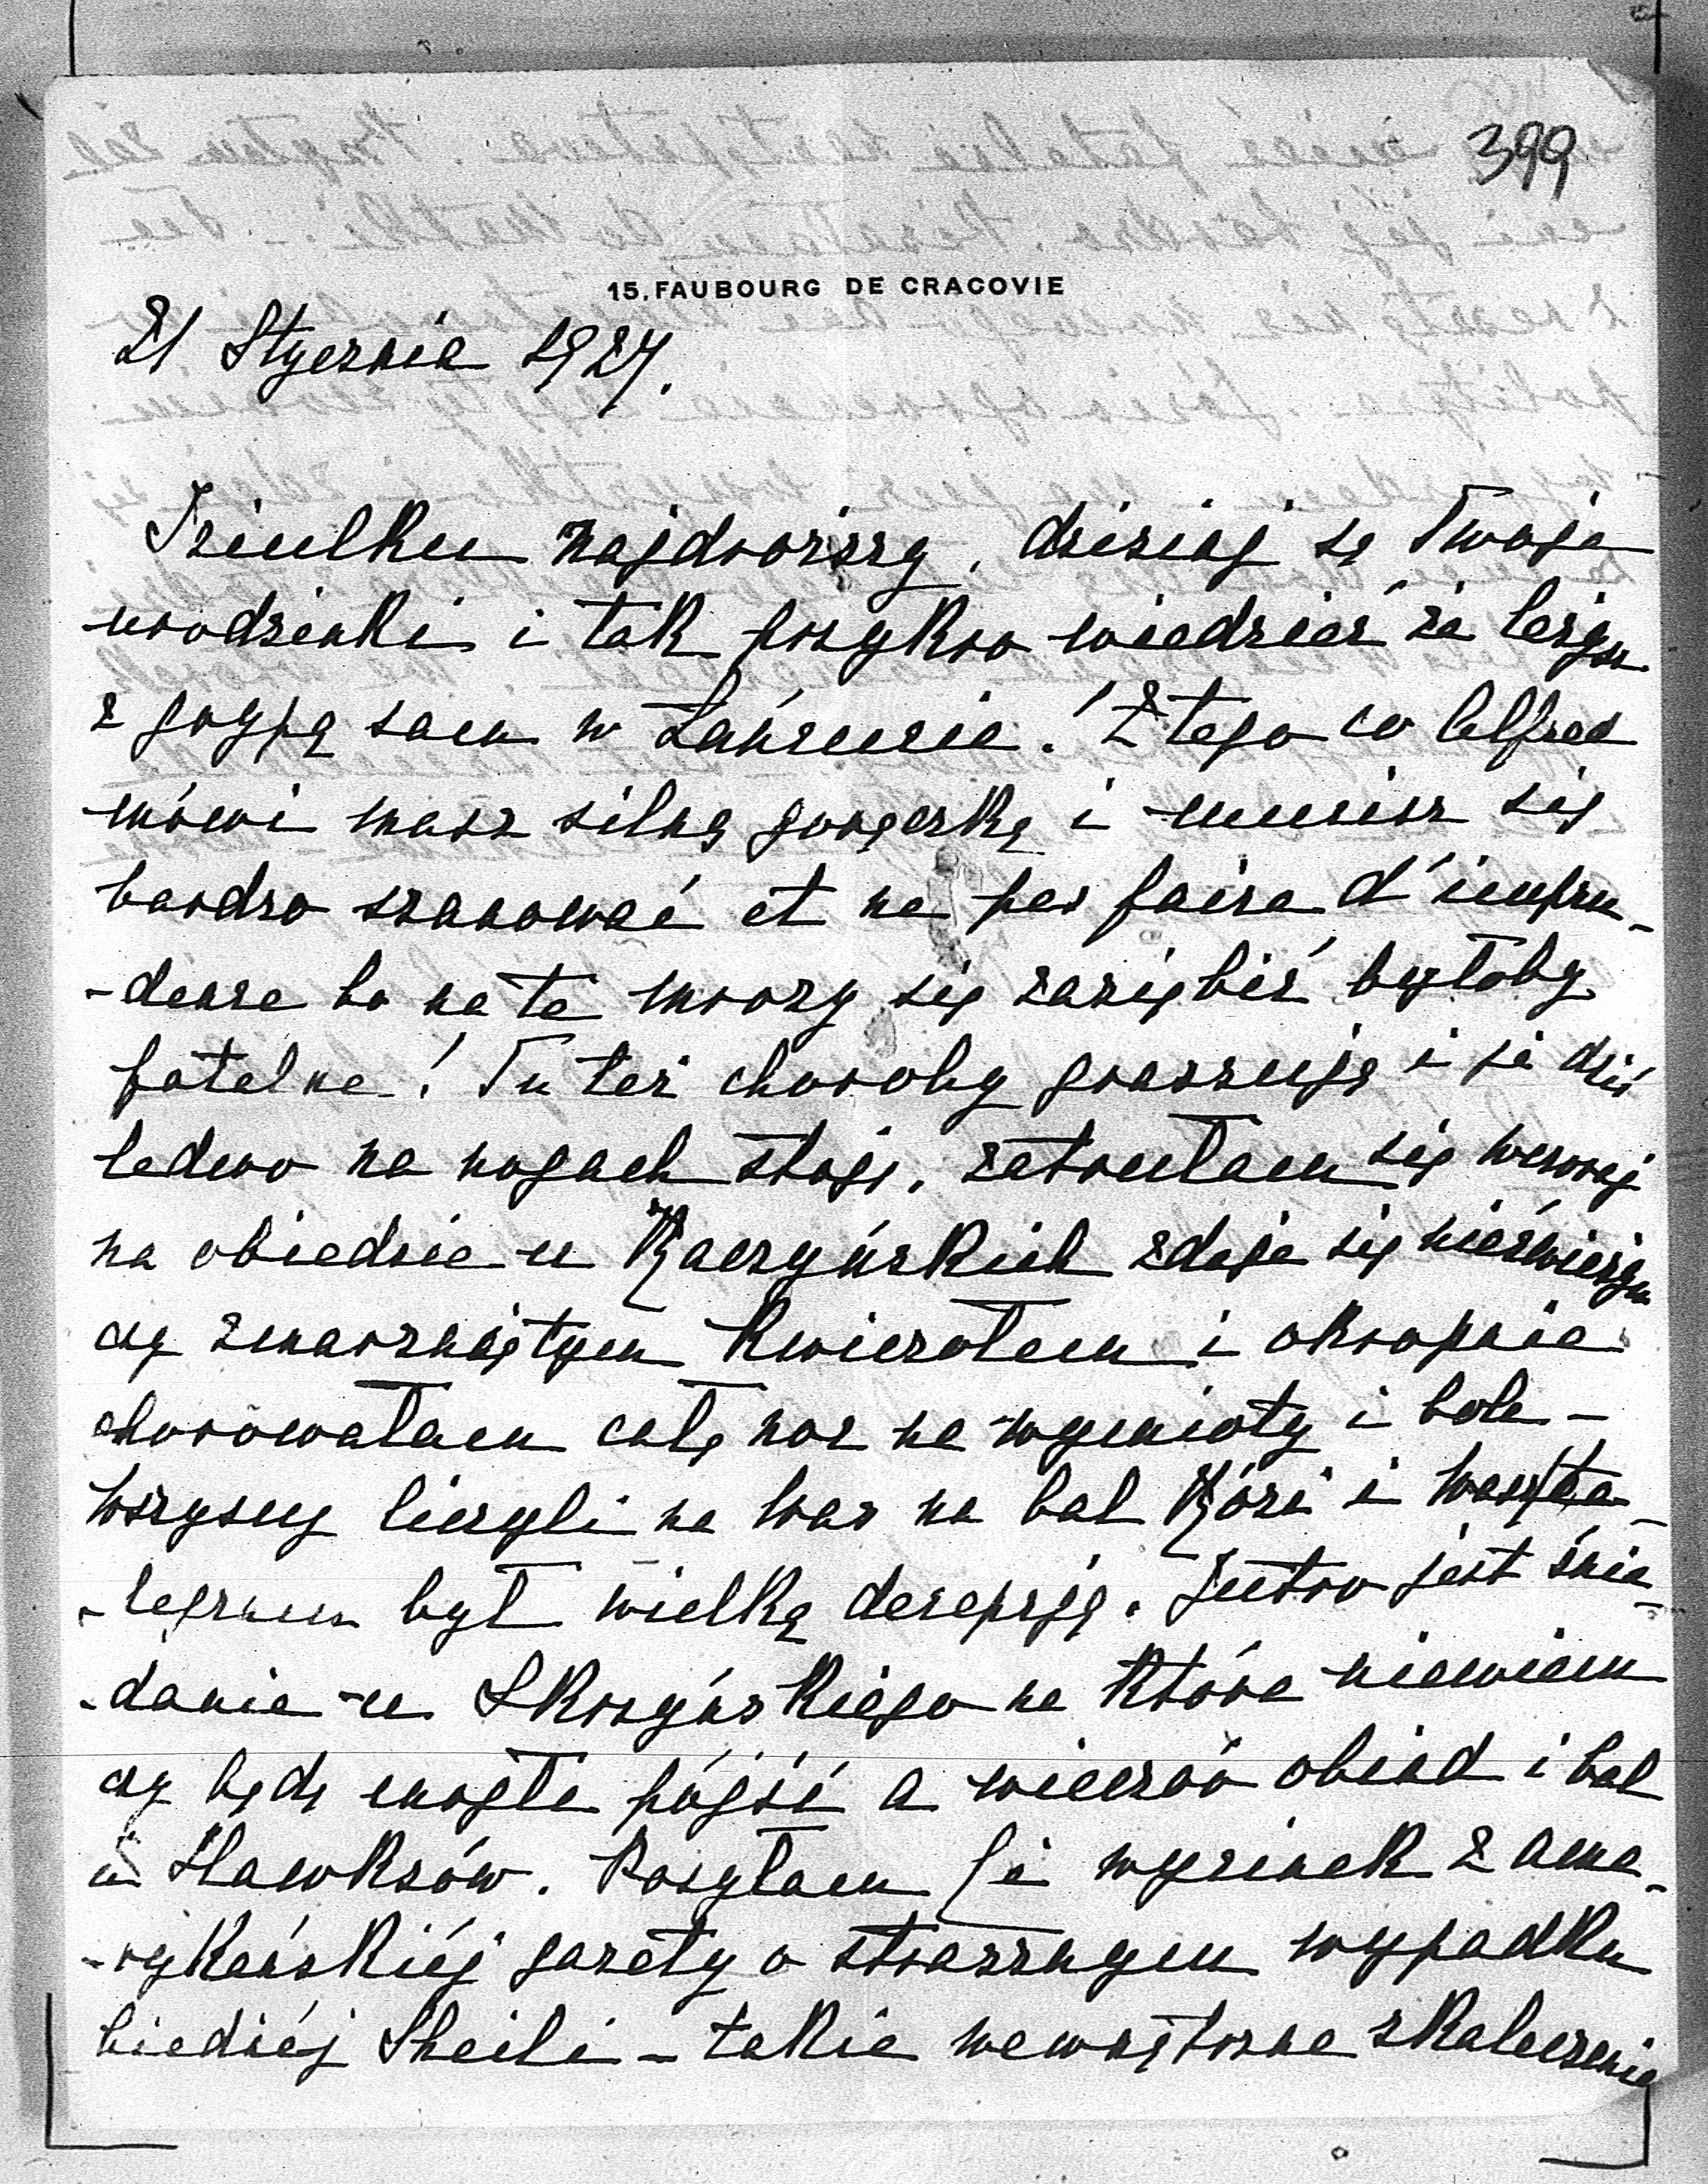 399
15, FAUBOURG DE CRACOVIE
21 Stycznia 1927.
Dziulku najdroższy, dzisiaj są Twoje
urodzinki i tak przykro wiedzieć że leżysz
z grypą sam w Łańcucie! Z tego co Alfred
mówi masz silną gorączkę i musisz się
bardzo szanować et ne pas faire d'impru-
-dence bo na te mrozy się zaziębić byłoby
fatalne! Tu też choroby grassują i ja dziś
ledwo na nogach stoję, zatrułam się wczoraj
na obiedzie u Raczyńskich zdaje się nieświeżym
czy zmarzniętym kwiczołem i okropnie
chorowałam całą noc na wymioty i bole -
wszyscy liczyli na Was na bal Rózi i
był wielką decepcją. Jutro jest śnia-
-danie u Skrzyńskiego na które niewiem
czy będę mogła pójść a wieczór obiad i bal
u Hawksów. Posyłam Ci wycinek z ame-
-rykańskiéj gazety o strasznym wypadku
biednéj Sheili - takie wewnętrzne skaleczenie